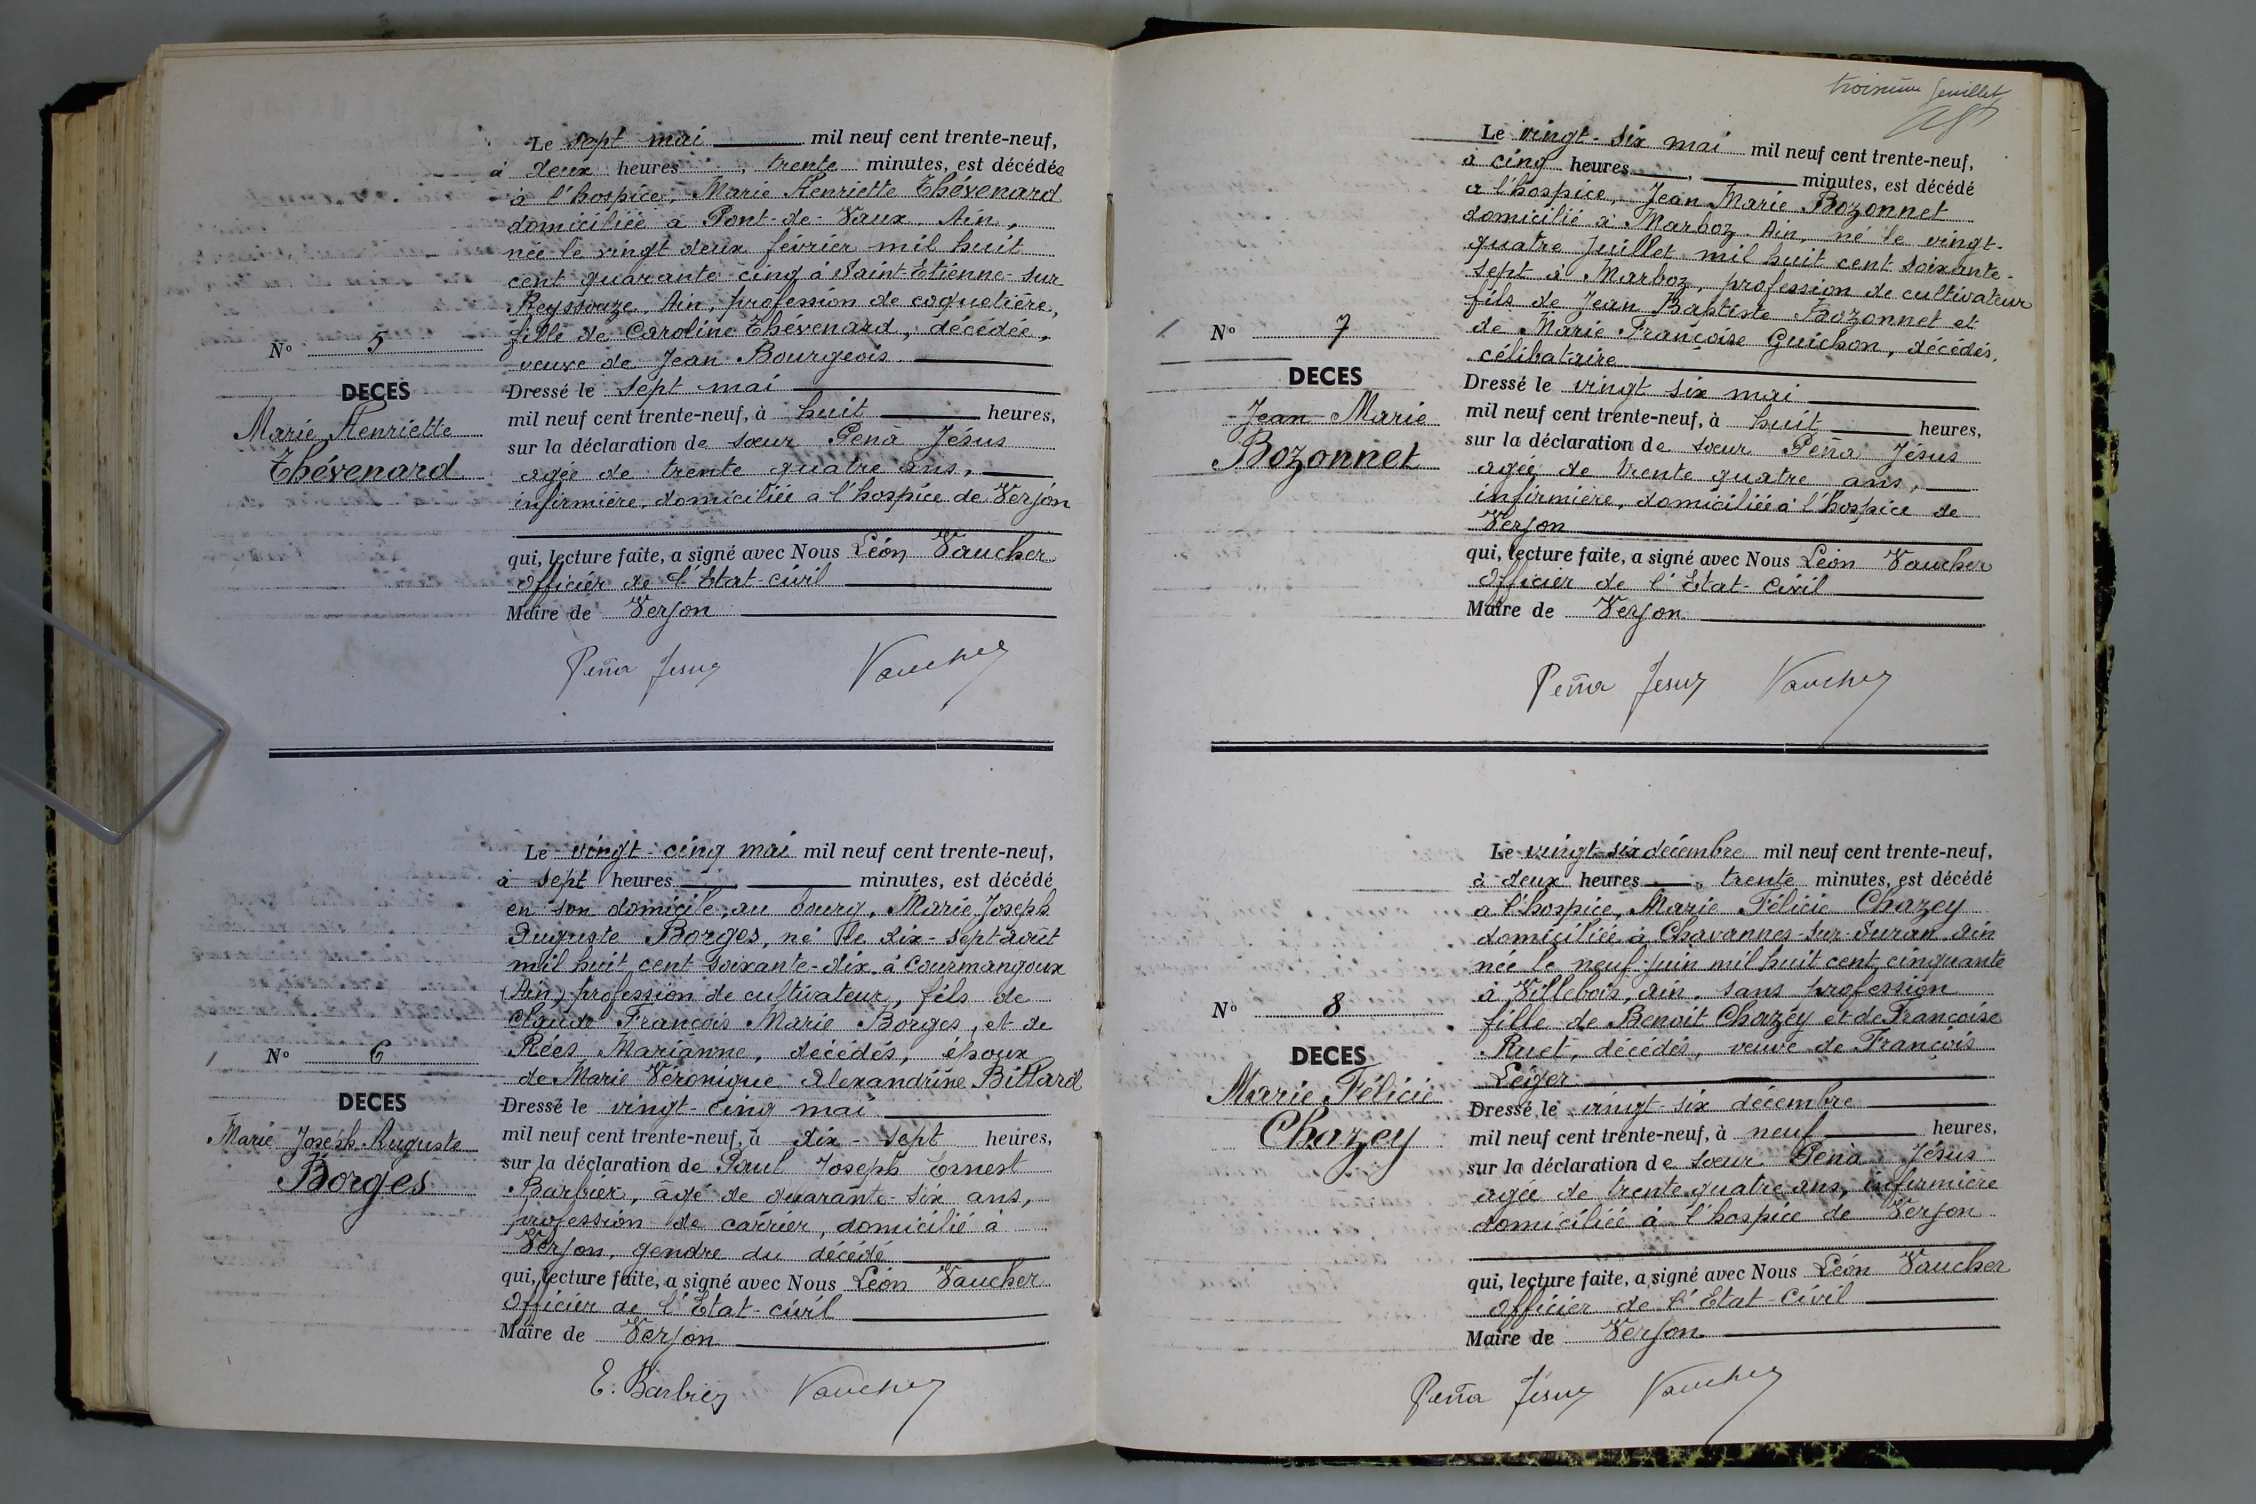 Le sept mai mil neuf cent trente-neuf,
à deux heures, trente minutes, est décédée
à l'hospice, Marie Henriette Thévenard
domiciliée à Pont-de-Vaux, Ain,
née le vingt deux février mil huit
cent quarante-cinq à Saint-Etienne-sur
Reyssouze, Ain, profession de coquetière,
fille de Caroline Thévenard, décédée,
veuve de Jean Bourgeois
Dressé le sept mai
mil neuf cent trente-neuf, à huit heures,
sur la déclaration de sœur Pena Jésus
agée de trente quatre ans,
infirmière, domiciliée à l'hospice de Verjon
qui, lecture faite, a signé avec Nous Léon Vaucher
officier de l'Etat-civil
Maire de Verjon
Peña Jesus Vaucher
N° 5
DECES
Marie Henriette
Thévenard
Le vingt-cinq mai mil neuf cent trente-neuf,
à sept heures minutes, est décédé
en son domicile, au bourg, Marie Joseph
Auguste Borges, né le dix-sept août
mil huit cent soixante-dix à Courmangoux
(Ain) profession de cultivateur, fils de
Claude François Marie Borges, et de
Rées Marianne, décédés, époux
de Marie Véronique Alexandrine Billard
Dressé le vingt-cinq mai
mil neuf cent trente-neuf, à dix-sept heures,
sur la déclaration de Paul Joseph Ernest
Barbier, âgé de quarante-six ans,
profession de carrier, domicilié à
Verjon, gendre du décédé
qui, lecture faite, a signé avec Nous Léon Vaucher
Officier de l'Etat-civil
Maire de Verjon
E. Barbier Vaucher
N° 6
DECES
Marie Joseph Auguste
Borges
troisième feuillet
Le vingt-six mai mil neuf cent trente-neuf,
à cinq heures, minutes, est décédé
à l'hospice, Jean Marie Bozonnet
domicilié à Marboz, Ain, né le vingt-
quatre Juillet mil huit cent soixante-
sept à Marboz, profession de cultivateur
fils de Jean Baptiste Bozonnet et
de Marie Françoise Guichon, décédés,
célibataire
Dressé le vingt six mai
mil neuf cent trente-neuf, à huit heures,
sur la déclaration de sœur Peña Jésus
agée de trente quatre ans,
infirmière, domiciliée à l'hospice de
Verjon
qui, lecture faite, a signé avec Nous Léon Vaucher
Officier de l'Etat-Civil
Maire de Verjon
Peña Jesus Vaucher
N° 7
DECES
Jean Marie
Bozonnet
Le vingt-six décembre mil neuf cent trente-neuf,
à deux heures, trente minutes, est décédé
à l'hospice, Marie Félicie Chazey
domiciliée à Chavannes-sur-Suran, Ain
née le neuf juin mil huit cent cinquante
à Villebois, Ain, sans profession
fille de Benoit Chazey et de Françoise
Ruet, décédés, veuve de François
Léger
Dressé le vingt-six décembre
mil neuf cent trente-neuf, à neuf heures,
sur la déclaration de sœur Pena Jésus
agée de trente quatre ans, infirmière
domiciliée à l'hospice de Verjon
qui, lecture faite, a signé avec Nous Léon Vaucher
officier de l'Etat-Civil
Maire de Verjon
Peña Jésus Vaucher
N° 8
DECES
Marie Félicie
Chazey